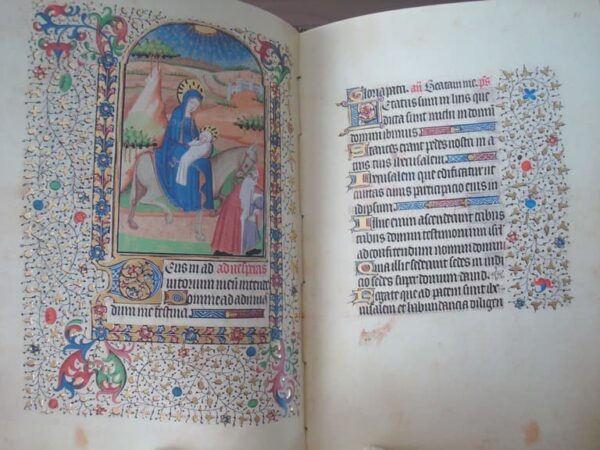 Deus in ad ad vesperas
iutorium meum intende
Domine ad adiuuan
dum me festina
Letatus sum in hiis que
dicta sunt michi in domū
domini ibimus
Stantes erant pedes nostri in
tuis iherusalem
Iherusalem que edificatur ut
ciuitas cuius participatio eius in
idipsum
Illuc enim ascenderunt tribus
tribus domini testimonium israel
ad confitendum nomini domini
Quia illic sederunt sedes in iudi
cio sedes super domum dauid
Rogate que ad pacem sunt ihe
rusalem et habundancia diligen